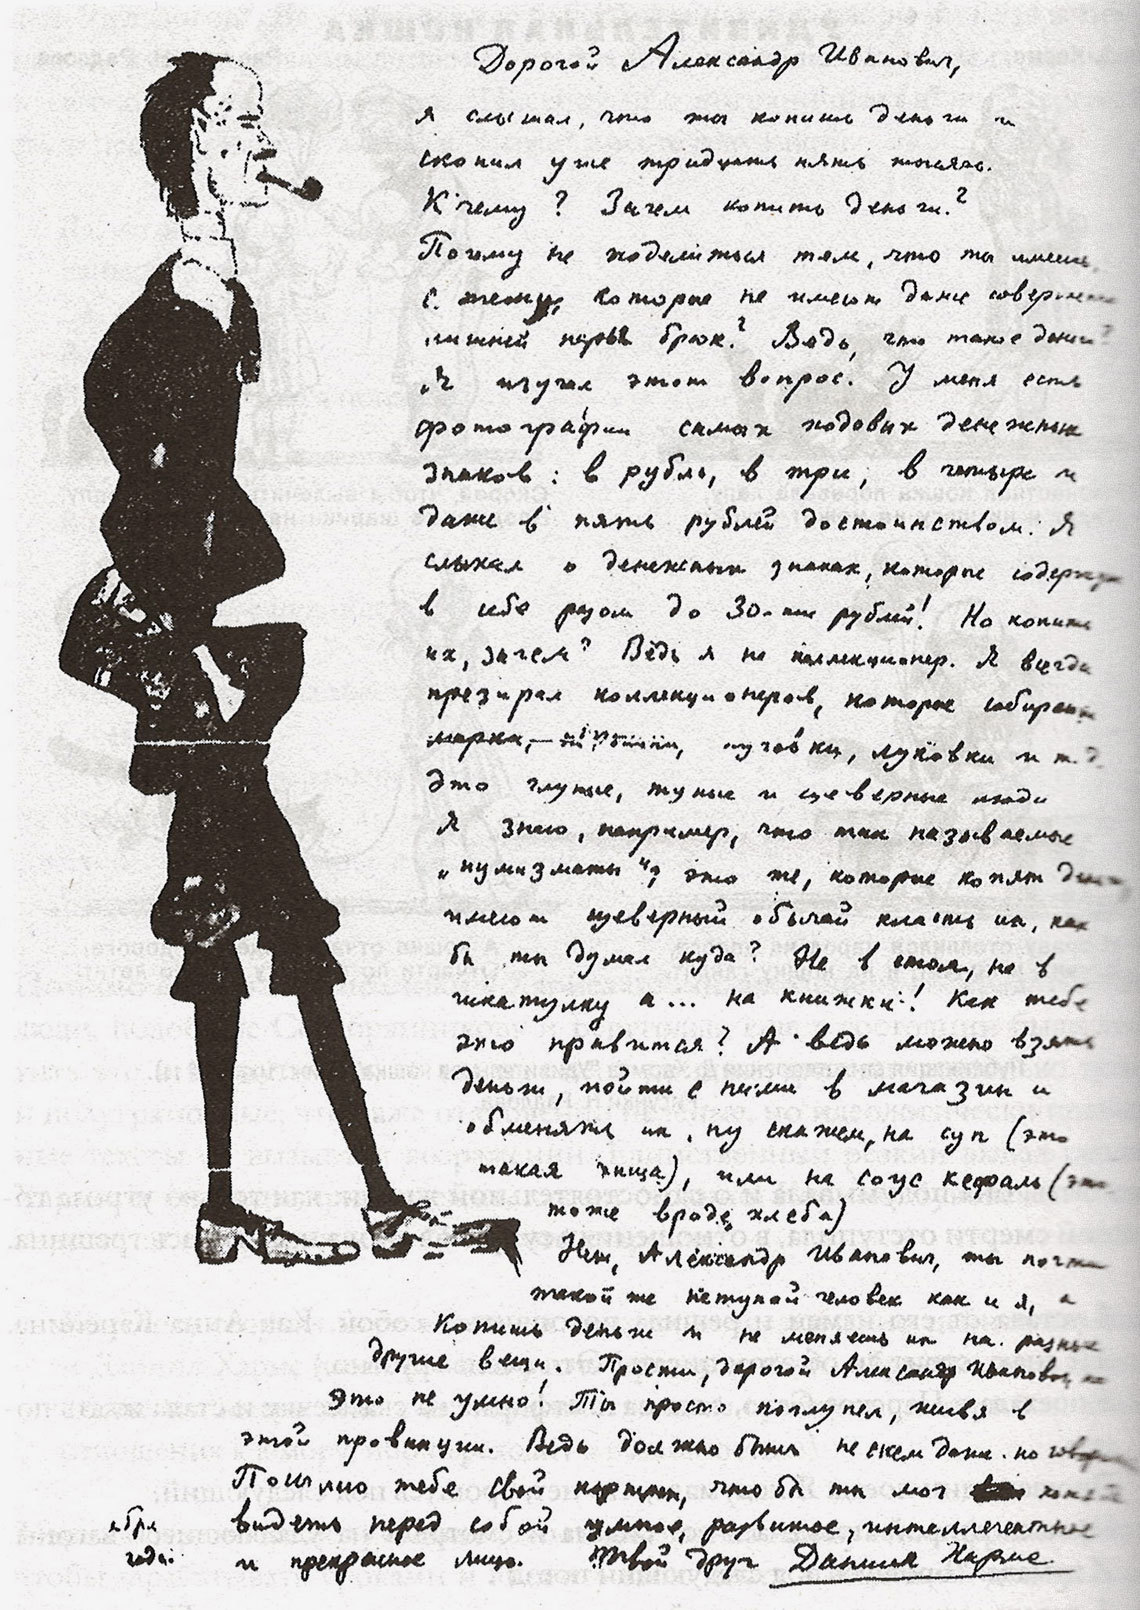 Дорогой Александр Иванович,
я слышал, что ты копишь деньги и
скопил уже тридцать пять тысяч.
К чему? Зачем копить деньги?
Почему не поделиться тем, что ты имеешь,
с теми, которые не имеют даже совершенно
лишней пары брюк? Ведь, что такое деньги?
Я изучал этот вопрос. У меня есть
фотографии самых ходовых денежных
знаков: в рубль, в три, в четыре и
даже в пять рублей достоинством. Я
слыхал о денежных знаках, которые содержат
в себе разом до 30-ти рублей! Но копить
их, зачем? Ведь я не коллекционер. Я всегда
презирал коллекционеров, которые собирают
марки, пуговки, луковки и т.д.
Это глупые, тупые и суеверные люди
Я знаю, например, что так называемые
„нумизматы", это те, которые копят деньги,
имеют суеверный обычай класть их, как
бы ты думал куда? Не в стол, не в
шкатулку а... на книжки! Как тебе
это нравится? А ведь можно взять
деньги, пойти с ними в магазин и
обменять их, ну скажем, на суп (это
такая пища), или на соус кефаль (это
тоже вроде хлеба)
Нет, Александр Иванович, ты почти
такой же нетупой человек как и я, а
копишь деньги и не меняешь их на разные
другие вещи. Прости, дорогой Александр Иванович, но
это не умно! Ты просто поглупел, живя в
этой провинции. Ведь должно быть не с кем даже поговорить
Посылаю тебе свой портрет, что бы ты мог
видеть перед собой умное, развитое, интеллигентное
и прекрасное лицо. Твой друг Даниил Хармс